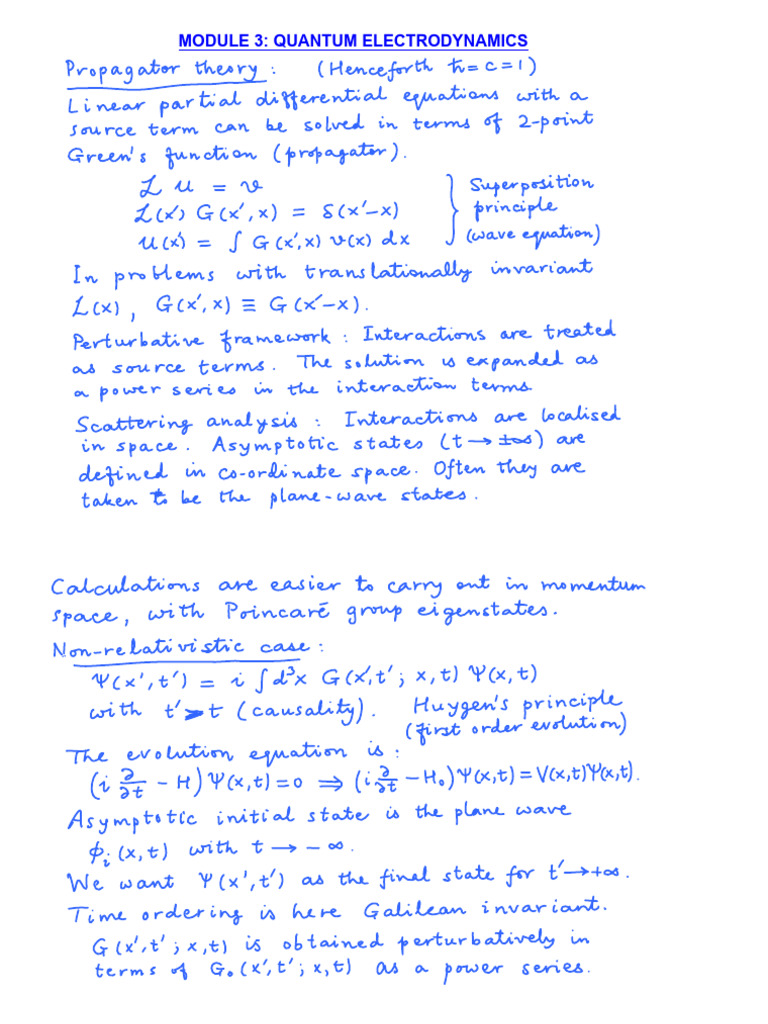 MODULE 3: QUANTUM ELECTRODYNAMICS
Propagator theory : (Henceforth ℏ=c=1)
Linear partial differential equations with a
source term can be solved in terms of 2-point
Green's function (propagator).
ℒ u = v } Superposition
ℒ(x') G(x',x) = δ(x'-x) principle
u(x') = ∫ G(x',x) v(x) dx (wave equation)
In problems with translationally invariant
ℒ(x), G(x',x) ≡ G(x'-x).
Perturbative framework : Interactions are treated
as source terms. The solution is expanded as
a power series in the interaction terms
Scattering analysis : Interactions are localised
in space. Asymptotic states (t → ±∞) are
defined in co-ordinate space. Often they are
taken to be the plane-wave states.
Calculations are easier to carry out in momentum
space, with Poincaré group eigenstates.
Non-relativistic case :
Ψ(x',t') = i ∫d³x G(x',t'; x,t) Ψ(x,t)
with t' > t (causality). Huygen's principle
(first order evolution)
The evolution equation is :
(i ∂/∂t - H) Ψ(x,t) = 0 ⇒ (i ∂/∂t - H₀) Ψ(x,t) = V(x,t)Ψ(x,t).
Asymptotic initial state is the plane wave
ϕᵢ(x,t) with t → -∞.
We want Ψ(x',t') as the final state for t' → +∞.
Time ordering is here Galilean invariant.
G(x',t'; x,t) is obtained perturbatively in
terms of G₀(x',t'; x,t) as a power series.